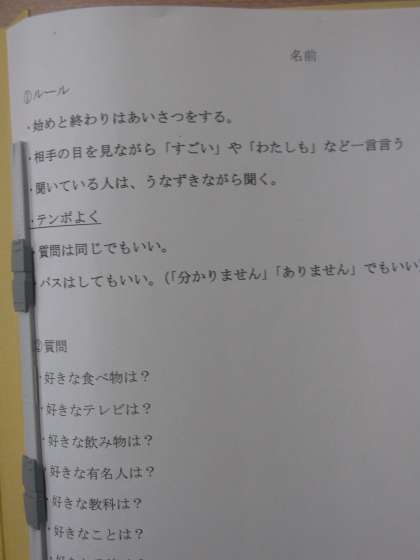 名前
①ルール
・始めと終わりはあいさつをする。
・相手の目を見ながら「すごい」や「わたしも」など一言言う
・聞いている人は、うなずきながら聞く。
・テンポよく
・質問は同じでもいい。
・パスはしてもいい。(「分かりません」「ありません」でもいい
②質問
・好きな食べ物は？
・好きなテレビは？
・好きな飲み物は？
・好きな有名人は？
・好きな教科は？
・好きなことは？